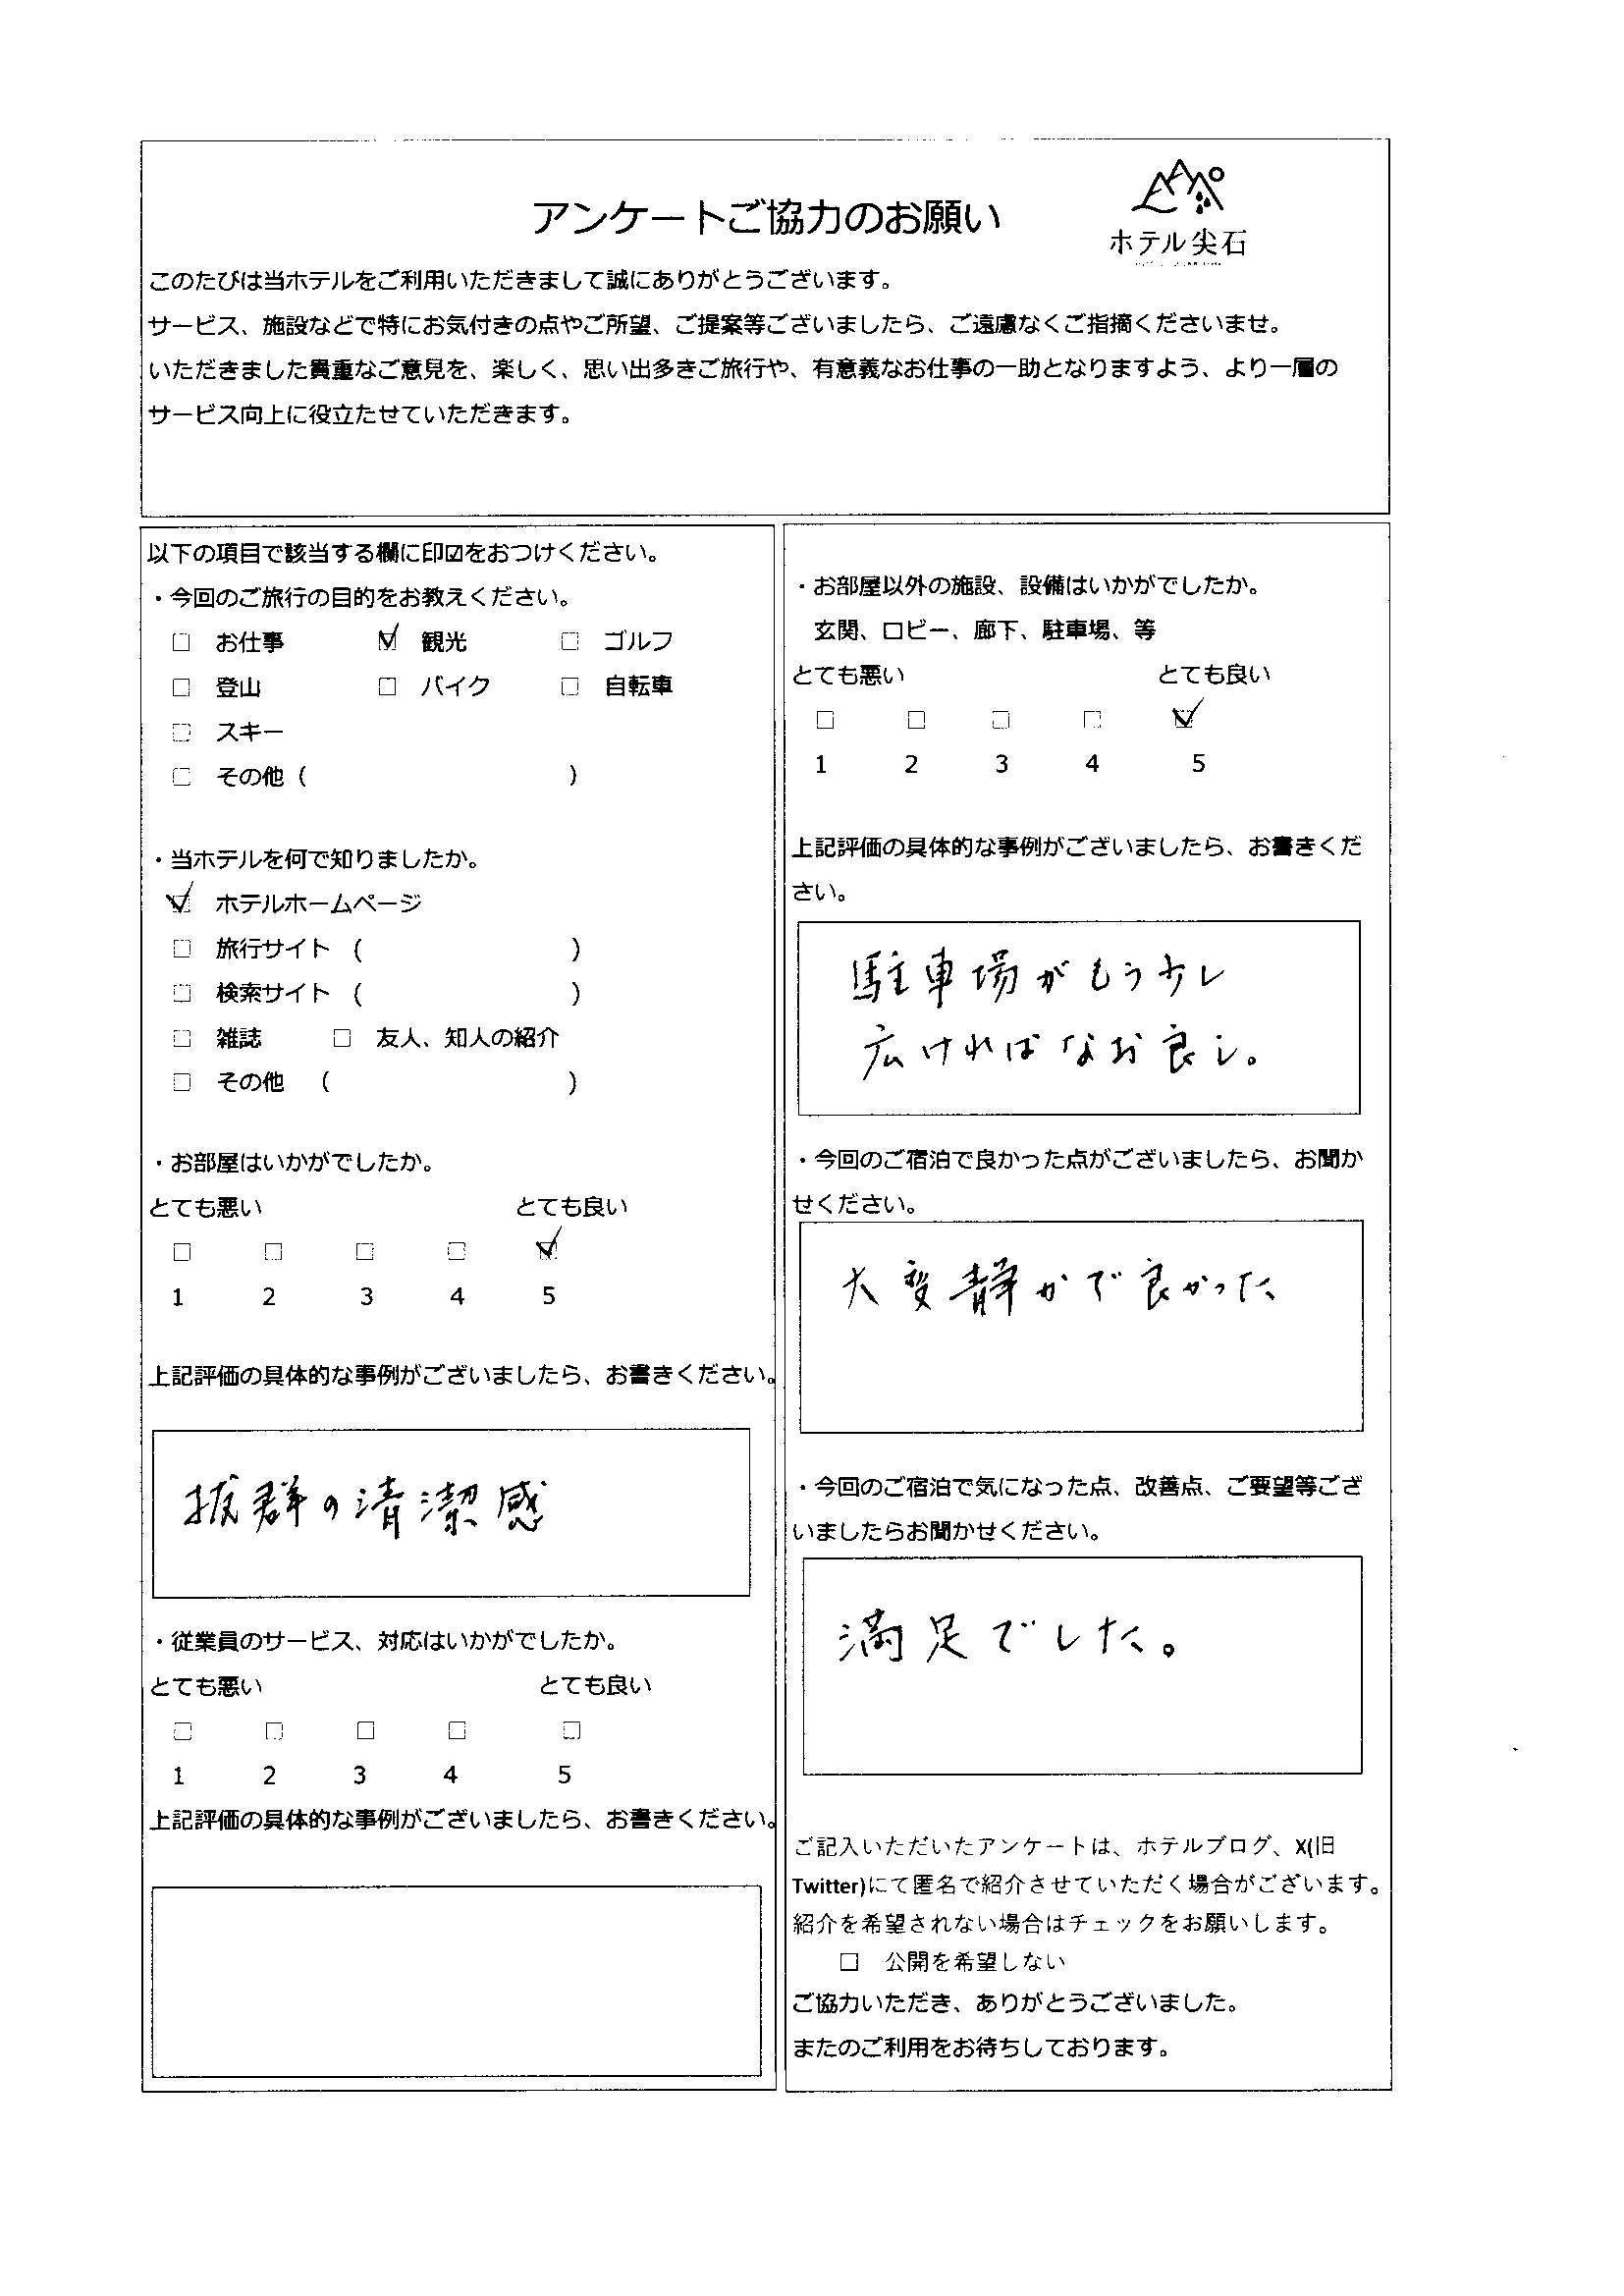 アンケートご協力のお願い
ホテル尖石
このたびは当ホテルをご利用いただきまして誠にありがとうございます。
サービス、施設などで特にお気付きの点やご所望、ご提案等ございましたら、ご遠慮なくご指摘くださいませ。
いただきました貴重なご意見を、楽しく、思い出多きご旅行や、有意義なお仕事の一助となりますよう、より一層の
サービス向上に役立たせていただきます。
以下の項目で該当する欄に印☑をおつけください。
・今回のご旅行の目的をお教えください。
□ お仕事 ☑ 観光 □ ゴルフ
□ 登山 □ バイク □ 自転車
□ スキー
□ その他（ ）
・当ホテルを何で知りましたか。
☑ ホテルホームページ
□ 旅行サイト （ ）
□ 検索サイト （ ）
□ 雑誌 □ 友人、知人の紹介
□ その他 （ ）
・お部屋はいかがでしたか。
とても悪い とても良い
□ □ □ □ ☑
1 2 3 4 5
上記評価の具体的な事例がございましたら、お書きください。
抜群の清潔感
・従業員のサービス、対応はいかがでしたか。
とても悪い とても良い
□ □ □ □ □
1 2 3 4 5
上記評価の具体的な事例がございましたら、お書きください。
・お部屋以外の施設、設備はいかがでしたか。
玄関、ロビー、廊下、駐車場、等
とても悪い とても良い
□ □ □ □ ☑
1 2 3 4 5
上記評価の具体的な事例がございましたら、お書きくだ
さい。
駐車場がもう少し
広ければなお良し。
・今回のご宿泊で良かった点がございましたら、お聞か
せください。
大変静かで良かった
・今回のご宿泊で気になった点、改善点、ご要望等ござ
いましたらお聞かせください。
満足でした。
ご記入いただいたアンケートは、ホテルブログ、X(旧
Twitter)にて匿名で紹介させていただく場合がございます。
紹介を希望されない場合はチェックをお願いします。
□ 公開を希望しない
ご協力いただき、ありがとうございました。
またのご利用をお待ちしております。